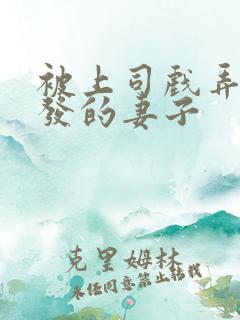 被上司戲弄
發的妻子
克里姆林
未经同意禁止转载